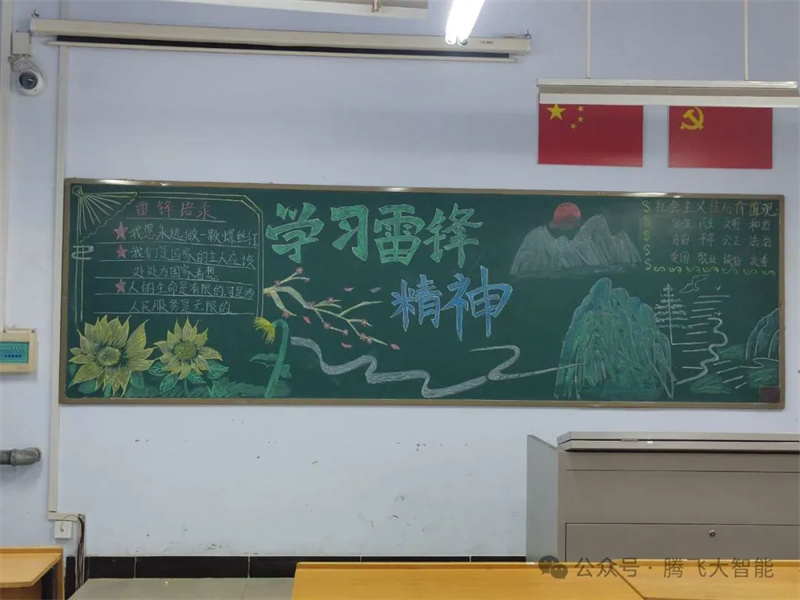 雷锋语录
★我愿永远做一颗螺丝钉
★我们是国家的主人应该
处处为国家着想
★人的生命是有限的可是为
人民服务是无限的
学习雷锋
精神
社会主义核心价值观
富强 民主 文明 和谐
自由 平等 公正 法治
爱国 敬业 诚信 友善
公众号·腾飞大智能